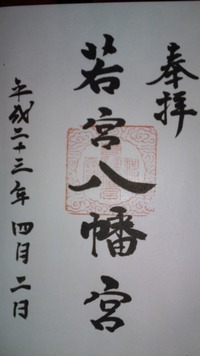 奉拝
若宮八幡宮
平成二十三年四月二日